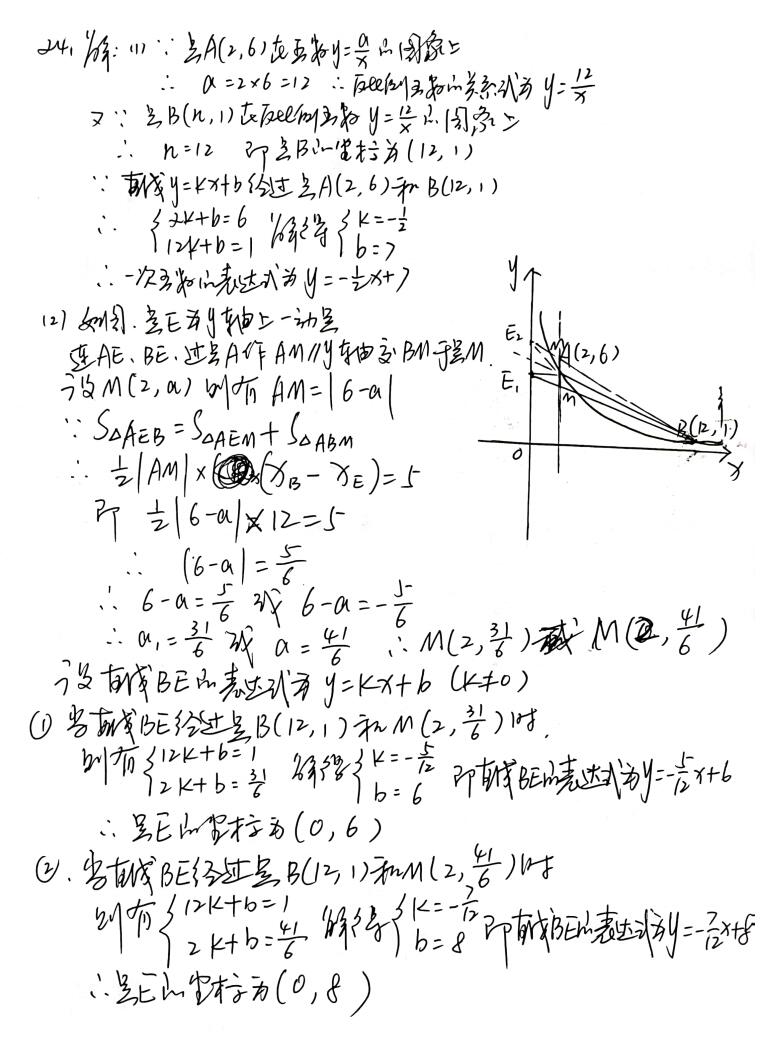 24、解:(1) ∵ 点A(2,6)在函数y=a/x的图象上
∴ a=2×6=12 ∴反比例函数的关系式为 y=12/x
又∵ 点B(n,1)在反比例函数 y=12/x的图象上
∴ n=12 即点B的坐标为(12,1)
∵ 直线y=kx+b经过点A(2,6)和B(12,1)
∴ {2k+b=6 12k+b=1 解得 {k=-1/2 b=7
∴一次函数的表达式为 y=-1/2x+7
(2) 如图.点E为y轴上一动点
连AE、BE、过点A作AM∥y轴交BM于点M.
设M(2,a) 则有 AM=|6-a|
∵ S△AEB=S△AEM+S△ABM
∴ 1/2|AM|×(xB-xE)=5
即 1/2|6-a|×12=5
∴ |6-a|=5/6
∴ 6-a=5/6 或 6-a=-5/6
∴ a₁=31/6 或 a=41/6 ∴M(2,31/6)或 M(2,41/6)
设直线BE的表达式为 y=kx+b (k≠0)
① 当直线BE经过点B(12,1)和M(2,31/6)时.
则有{12k+b=1 2k+b=31/6 解得{k=-5/12 b=6 即直线BE的表达式为y=-5/12x+6
∴ 点E的坐标为(0,6)
②.当直线BE经过点B(12,1)和M(2,41/6)时
则有{12k+b=1 2k+b=41/6 解得{k=-7/12 b=8 即直线BE的表达式为y=-7/12x+8
∴点E的坐标为(0,8)
y
E₂
M
A(2,6)
E₁
M
B(12,1)
0
x